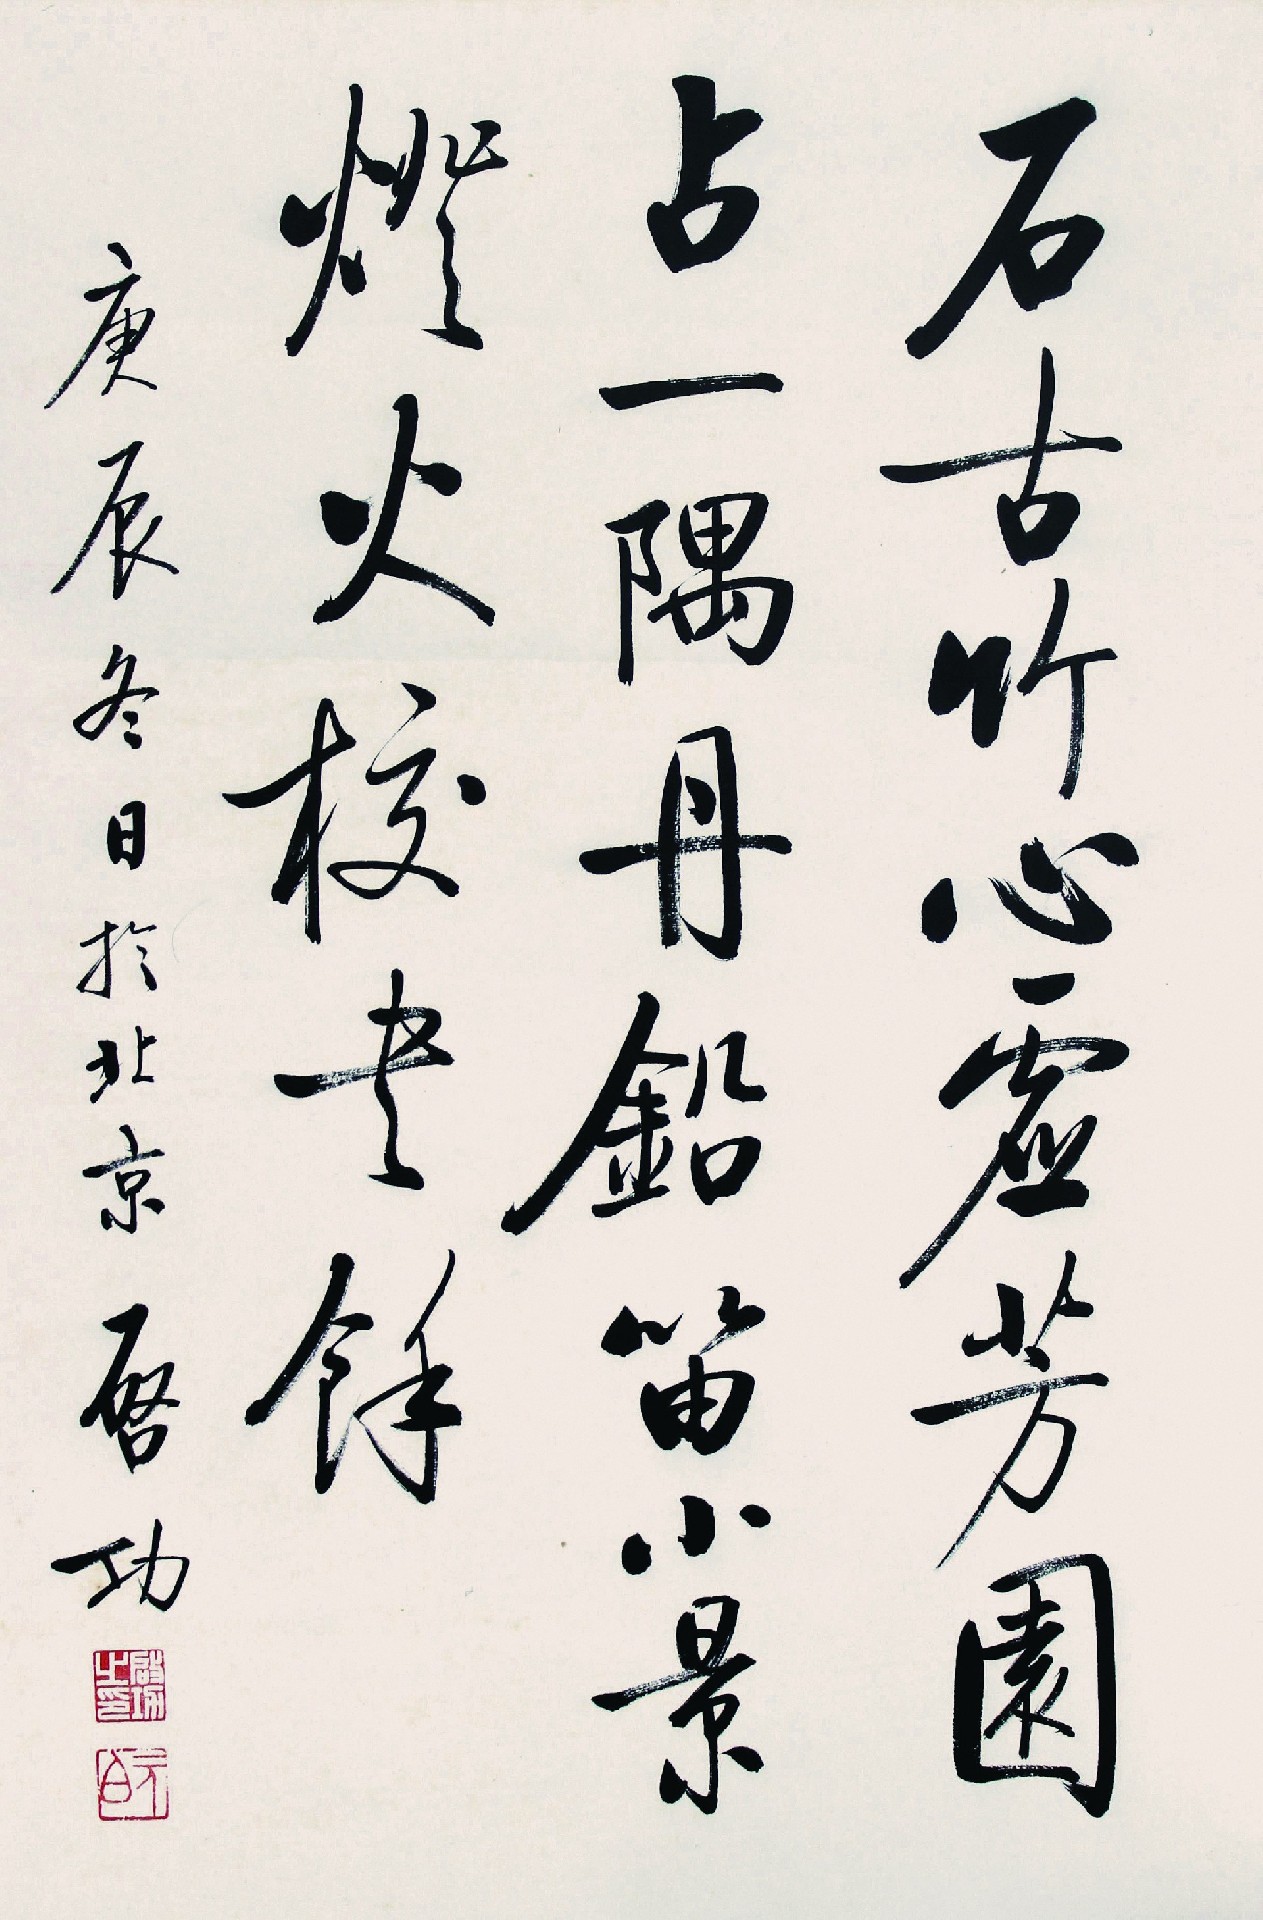 石古竹心虛芳園
占一隅丹鉛留小景
燈火校書餘
庚辰冬日於北京 啓功
啟功之印
元白